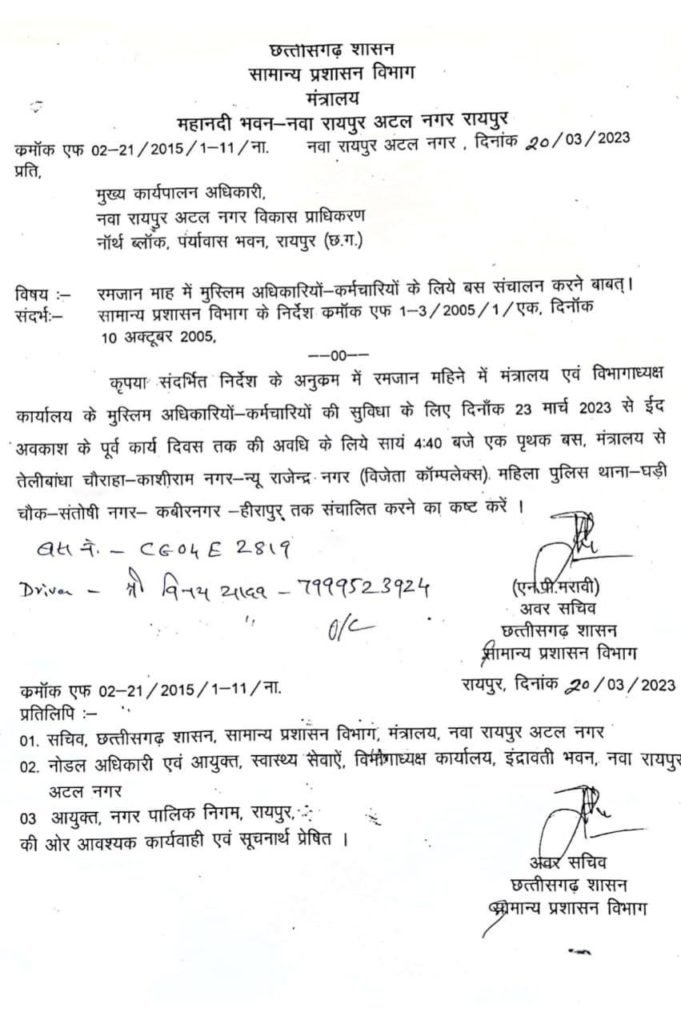 छत्तीसगढ़ शासन
सामान्य प्रशासन विभाग
मंत्रालय
महानदी भवन–नवा रायपुर अटल नगर रायपुर
कमॉक एफ 02–21/2015/1–11/ना. नवा रायपुर अटल नगर , दिनांक 20/03/2023
प्रति,
मुख्य कार्यपालन अधिकारी,
नवा रायपुर अटल नगर विकास प्राधिकरण
नॉर्थ ब्लॉक, पर्यावास भवन, रायपुर (छ.ग.)
विषय :– रमजान माह में मुस्लिम अधिकारियों–कर्मचारियों के लिये बस संचालन करने बाबत्।
संदर्भः– सामान्य प्रशासन विभाग के निर्देश कमॉक एफ 1–3/2005/1/एक, दिनॉक
10 अक्टूबर 2005,
––00––
कृपया संदर्भित निर्देश के अनुकम में रमजान महिने में मंत्रालय एवं विभागाध्यक्ष
कार्यालय के मुस्लिम अधिकारियों–कर्मचारियों की सुविधा के लिए दिनॉंक 23 मार्च 2023 से ईद
अवकाश के पूर्व कार्य दिवस तक की अवधि के लिये सायं 4:40 बजे एक पृथक बस, मंत्रालय से
तेलीबांधा चौराहा–काशीराम नगर–न्यू राजेन्द्र नगर (विजेता कॉम्पलेक्स) महिला पुलिस थाना–घड़ी
चौक–संतोषी नगर– कबीरनगर –हीरापुर तक संचालित करने का कष्ट करें ।
बस नं. – CG04 E 2819
Driver – श्री विनय यादव – 7999523924
O/C
(एन.पी.मरावी)
अवर सचिव
छत्तीसगढ़ शासन
सामान्य प्रशासन विभाग
कमॉक एफ 02–21/2015/1–11/ना. रायपुर, दिनांक 20/03/2023
प्रतिलिपि :–
01. सचिव, छत्तीसगढ़ शासन, सामान्य प्रशासन विभाग, मंत्रालय, नवा रायपुर अटल नगर
02. नोडल अधिकारी एवं आयुक्त, स्वास्थ्य सेवाऐं, विभागाध्यक्ष कार्यालय, इंद्रावती भवन, नवा रायपुर
अटल नगर
03 आयुक्त, नगर पालिक निगम, रायपुर,
की ओर आवश्यक कार्यवाही एवं सूचनार्थ प्रेषित ।
अवर सचिव
छत्तीसगढ़ शासन
सामान्य प्रशासन विभाग